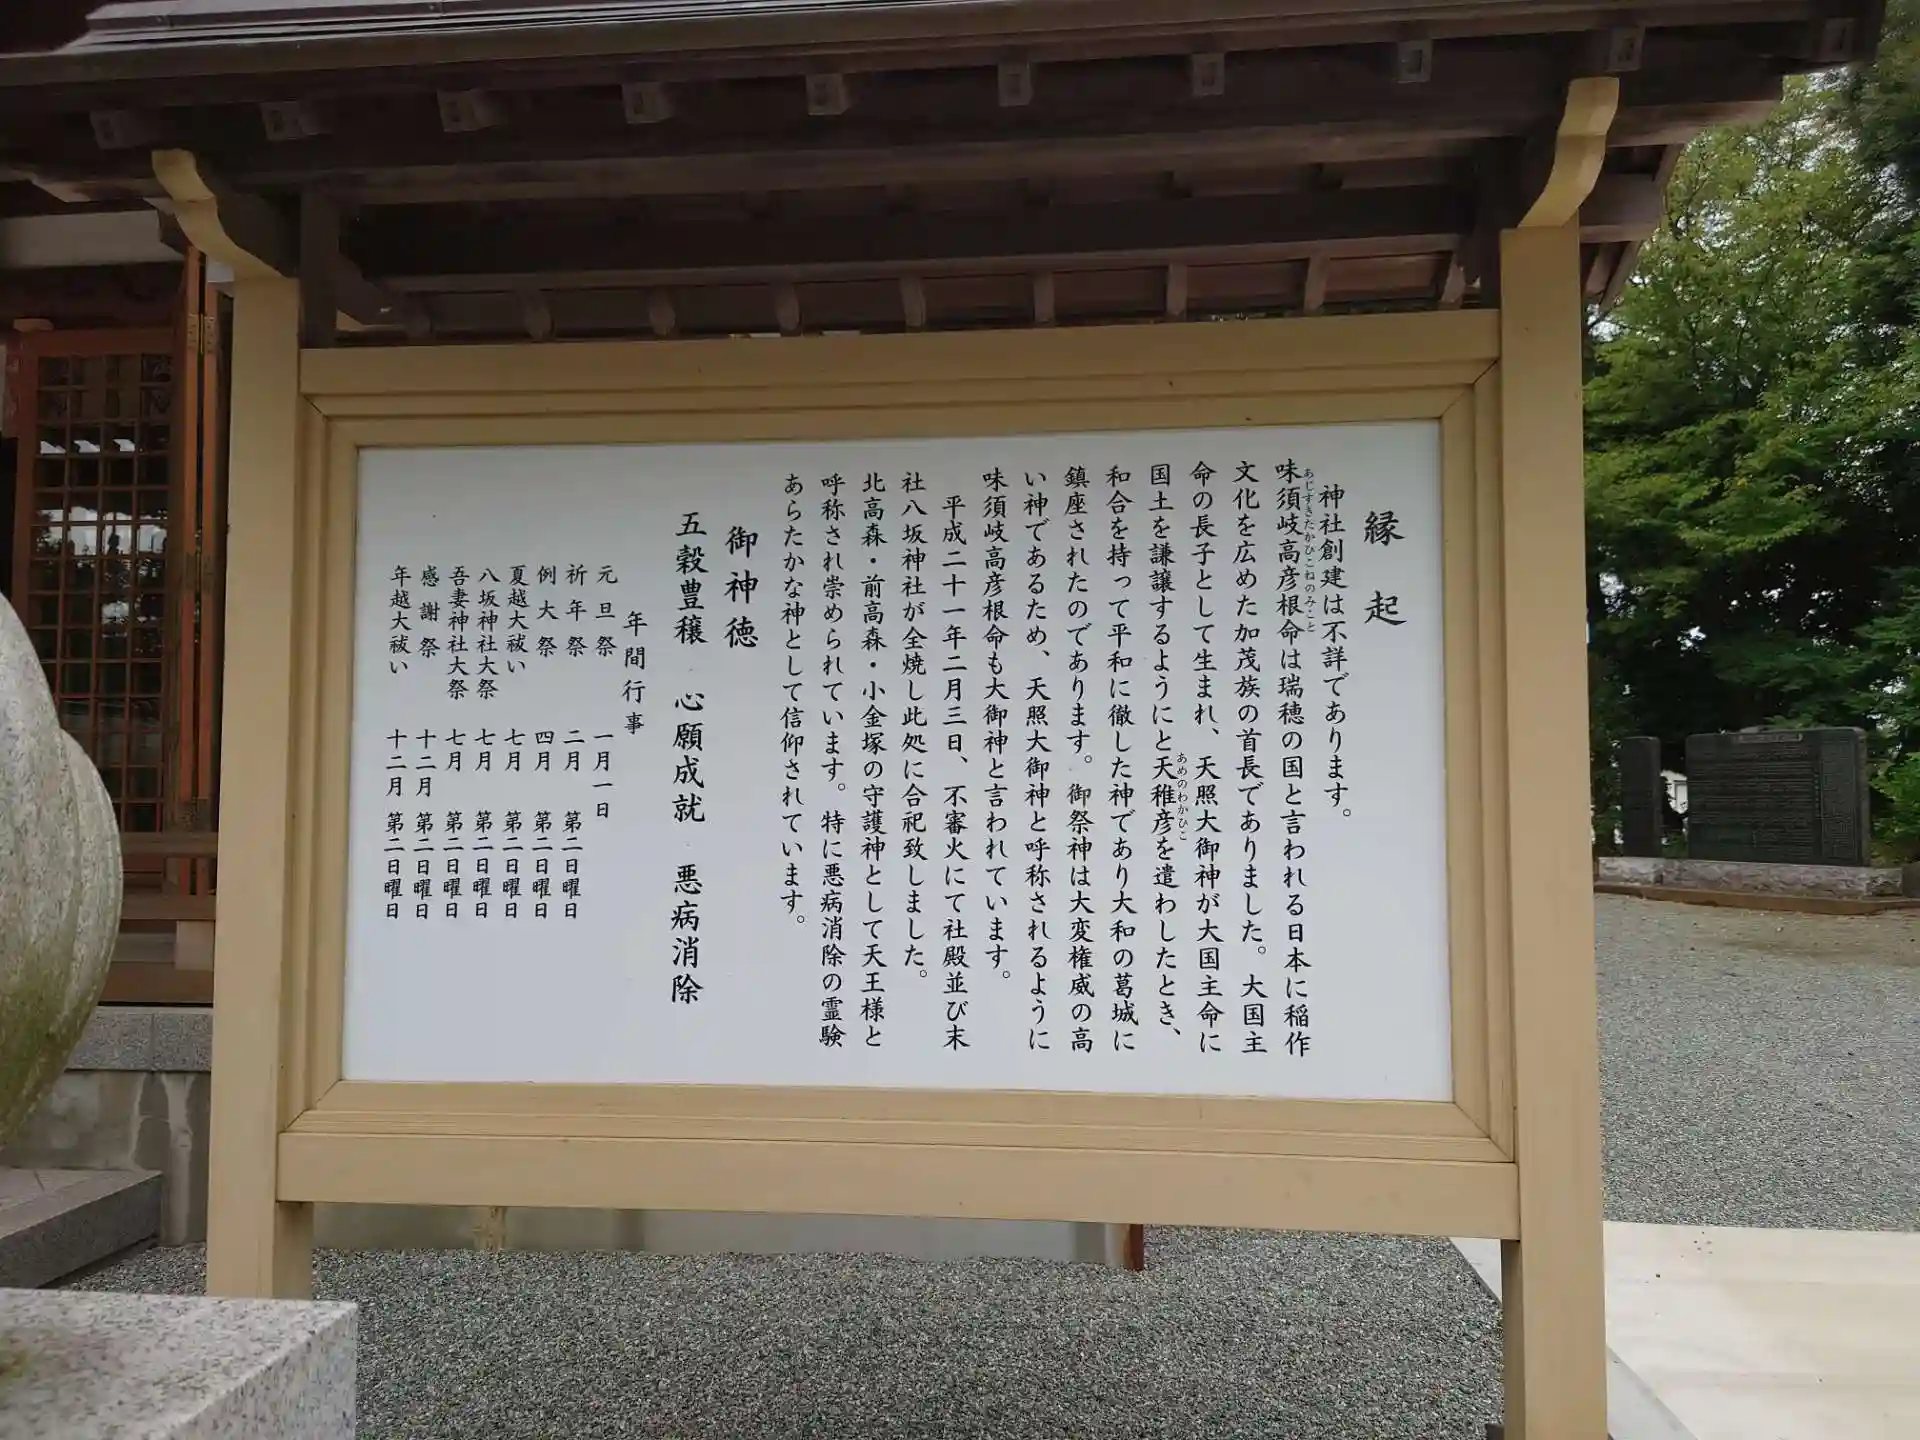 縁起
神社創建は不詳であります。
味須岐高彦根命は瑞穂の国と言われる日本に稲作
あじすきたかひこねのみこと
文化を広めた加茂族の首長でありました。大国主
命の長子として生まれ、天照大御神が大国主命に
国土を謙譲するようにと天稚彦を遣わしたとき、
あめのわかひこ
和合を持って平和に徹した神であり大和の葛城に
鎮座されたのであります。御祭神は大変権威の高
い神であるため、天照大御神と呼称されるように
味須岐高彦根命も大御神と言われています。
平成二十一年二月三日、不審火にて社殿並び末
社八坂神社が全焼し此処に合祀致しました。
北高森・前高森・小金塚の守護神として天王様と
呼称され崇められています。特に悪病消除の霊験
あらたかな神として信仰されています。
御神徳
五穀豊穣 心願成就 悪病消除
年間行事
元旦祭 一月一日
祈年祭 二月 第二日曜日
例大祭 四月 第二日曜日
夏越大祓い 七月 第二日曜日
八坂神社大祭 七月 第二日曜日
吾妻神社大祭 七月 第二日曜日
感謝祭 十二月 第二日曜日
年越大祓い 十二月 第二日曜日